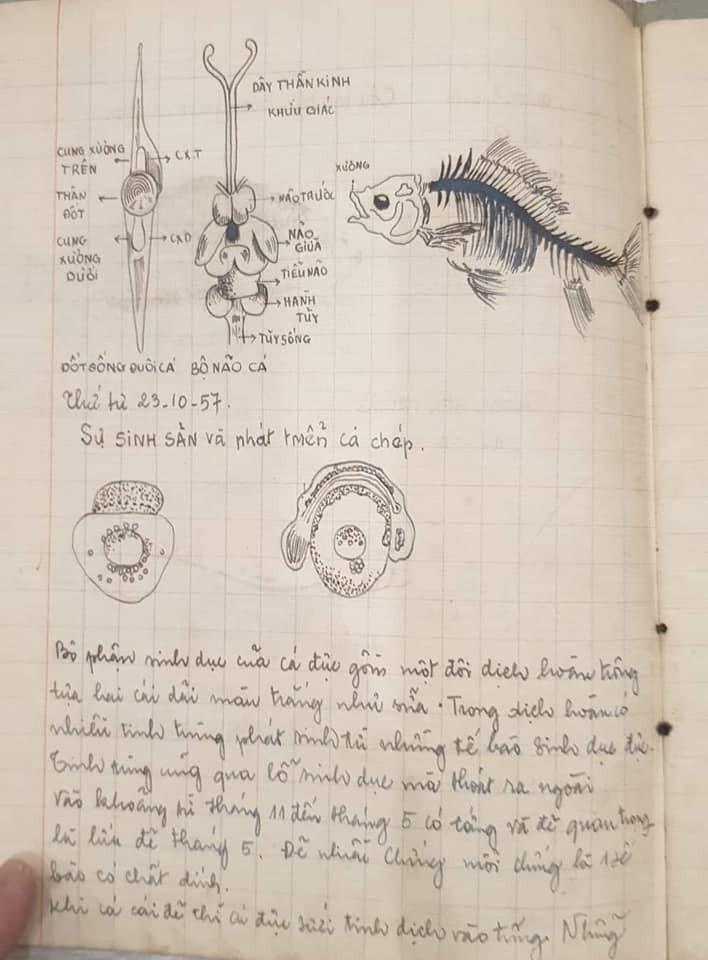 DÂY THẦN KINH
KHỨU GIÁC
CUNG XƯƠNG
TRÊN
C.X.T
THÂN
ĐỐT
CUNG
XƯƠNG
DƯỚI
CXD
NÃO TRƯỚC
NÃO
GIỮA
TIỂU NÃO
HÀNH
TỦY
TỦY SỐNG
XƯƠNG
ĐỐT SỐNG ĐUÔI CÁ BỘ NÃO CÁ
Thứ tư 23-10-57.
Sự SINH SẢN và phát triển cá chép.
Bộ phận sinh dục của cá đực gồm một đôi dịch hoàn trông
tựa hai cái dãi màu trắng như sữa. Trong dịch hoàn có
nhiều tinh trùng phát sinh từ những tế bào sinh dục đực.
Tinh trùng qua lỗ sinh dục mà thoát ra ngoài
vào khoảng từ tháng 11 đến tháng 5 có và đẻ quan trọng
là lứa đẻ tháng 5. Đẻ nhiều mỗi là 1 tế
bào có chất dính.
Khi cá cái đẻ thì cá đực tinh dịch vào trứng. Những